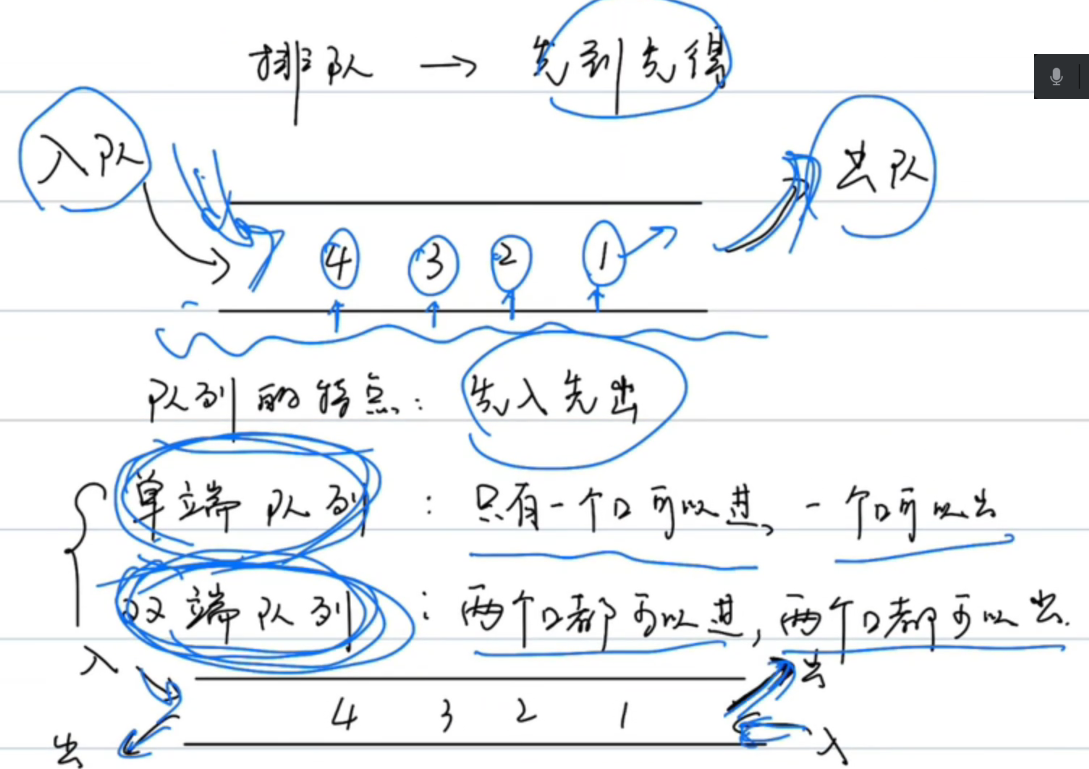 排队 → 先到先得
入队 出队
4 3 2 1
队列的特点：先入先出
单端队列：只有一个口可以进，一个口可以出
双端队列：两个口都可以进，两个口都可以出.
入 出
4 3 2 1
出 入